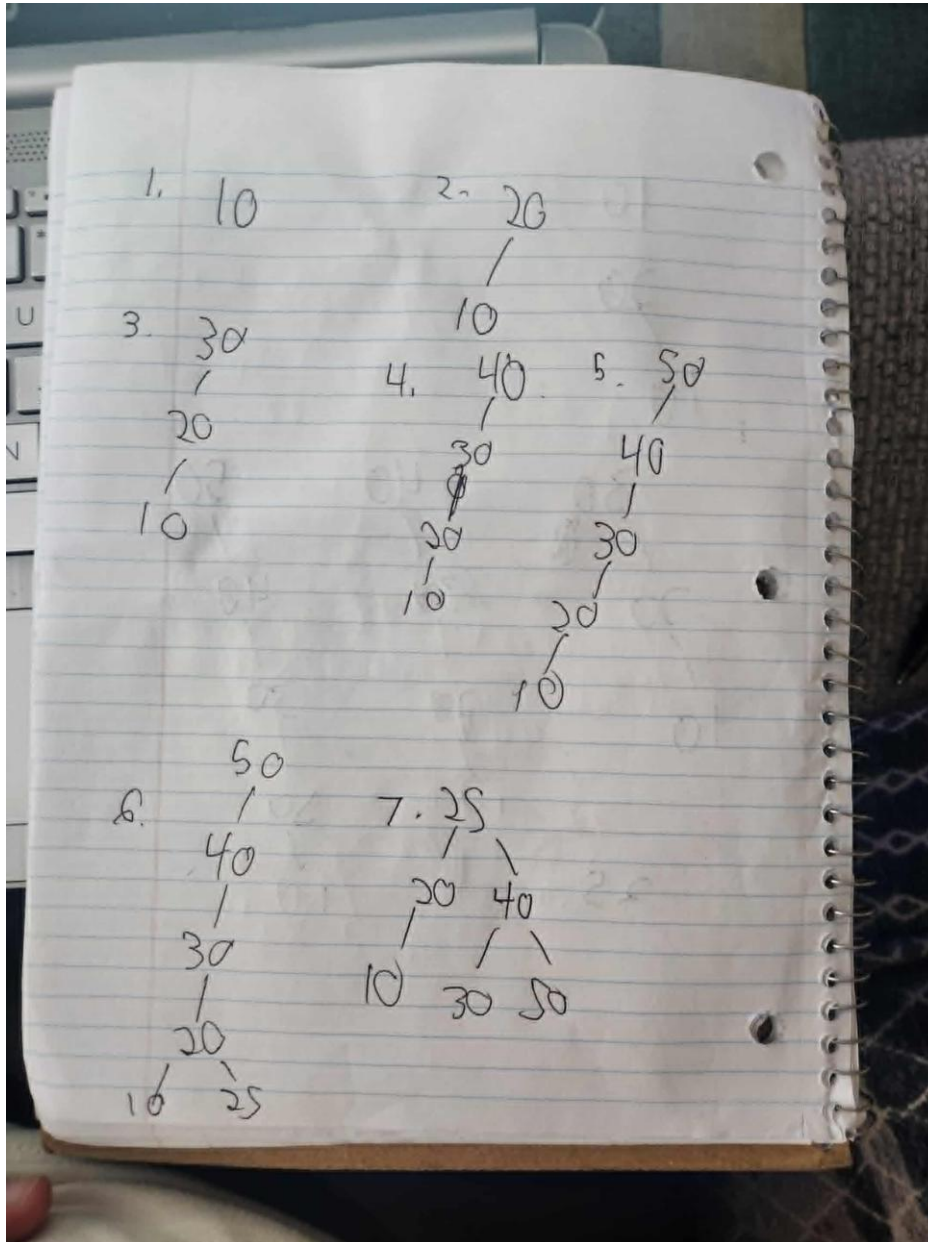 1. 10
2. 20
10
3. 30
20
10
4. 40
30
20
10
5. 50
40
30
20
10
6. 50
40
30
20
10 25
7. 25
20 40
10 30 50
U